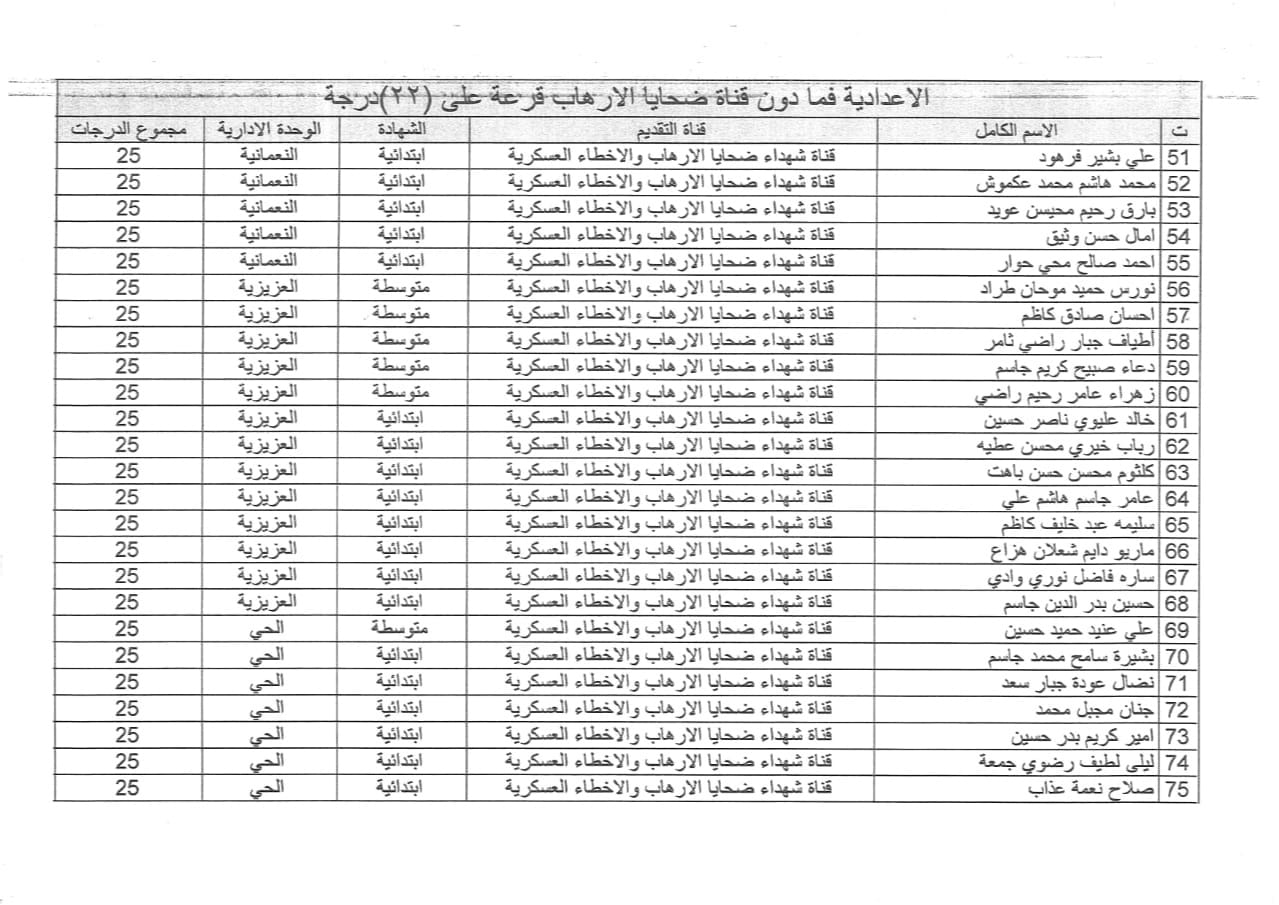 الاعدادية فما دون قناة ضحايا الارهاب قرعة على (٢٢)درجة
ت الاسم الكامل قناة التقديم الشهادة الوحدة الادارية مجموع الدرجات
51 علي بشير فرهود قناة شهداء ضحايا الارهاب والاخطاء العسكرية ابتدائية النعمانية 25
52 محمد هاشم محمد عكموش قناة شهداء ضحايا الارهاب والاخطاء العسكرية ابتدائية النعمانية 25
53 بارق رحيم محيسن عويد قناة شهداء ضحايا الارهاب والاخطاء العسكرية ابتدائية النعمانية 25
54 امال حسن وثيق قناة شهداء ضحايا الارهاب والاخطاء العسكرية ابتدائية النعمانية 25
55 احمد صالح محي حوار قناة شهداء ضحايا الارهاب والاخطاء العسكرية ابتدائية النعمانية 25
56 نورس حميد موحان طراد قناة شهداء ضحايا الارهاب والاخطاء العسكرية متوسطة العزيزية 25
57 احسان صادق كاظم قناة شهداء ضحايا الارهاب والاخطاء العسكرية متوسطة العزيزية 25
58 أطياف جبار راضي ثامر قناة شهداء ضحايا الارهاب والاخطاء العسكرية متوسطة العزيزية 25
59 دعاء صبيح كريم جاسم قناة شهداء ضحايا الارهاب والاخطاء العسكرية متوسطة العزيزية 25
60 زهراء عامر رحيم راضي قناة شهداء ضحايا الارهاب والاخطاء العسكرية متوسطة العزيزية 25
61 خالد عليوي ناصر حسين قناة شهداء ضحايا الارهاب والاخطاء العسكرية ابتدائية العزيزية 25
62 رباب خيري محسن عطيه قناة شهداء ضحايا الارهاب والاخطاء العسكرية ابتدائية العزيزية 25
63 كلثوم محسن حسن باهت قناة شهداء ضحايا الارهاب والاخطاء العسكرية ابتدائية العزيزية 25
64 عامر جاسم هاشم علي قناة شهداء ضحايا الارهاب والاخطاء العسكرية ابتدائية العزيزية 25
65 سليمه عبد خليف كاظم قناة شهداء ضحايا الارهاب والاخطاء العسكرية ابتدائية العزيزية 25
66 ماريو دايم شعلان هزاع قناة شهداء ضحايا الارهاب والاخطاء العسكرية ابتدائية العزيزية 25
67 ساره فاضل نوري وادي قناة شهداء ضحايا الارهاب والاخطاء العسكرية ابتدائية العزيزية 25
68 حسين بدر الدين جاسم قناة شهداء ضحايا الارهاب والاخطاء العسكرية ابتدائية العزيزية 25
69 علي عنيد حميد حسين قناة شهداء ضحايا الارهاب والاخطاء العسكرية متوسطة الحي 25
70 بشيرة سامح محمد جاسم قناة شهداء ضحايا الارهاب والاخطاء العسكرية ابتدائية الحي 25
71 نضال عودة جبار سعد قناة شهداء ضحايا الارهاب والاخطاء العسكرية ابتدائية الحي 25
72 جنان مجبل محمد قناة شهداء ضحايا الارهاب والاخطاء العسكرية ابتدائية الحي 25
73 امير كريم بدر حسين قناة شهداء ضحايا الارهاب والاخطاء العسكرية ابتدائية الحي 25
74 ليلى لطيف رضوي جمعة قناة شهداء ضحايا الارهاب والاخطاء العسكرية ابتدائية الحي 25
75 صلاح نعمة عذاب قناة شهداء ضحايا الارهاب والاخطاء العسكرية ابتدائية الحي 25